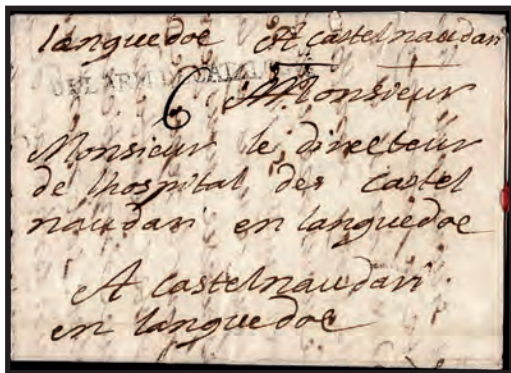 languedoc A castelnaudari
DE L'ARMEE
6 A Monsieur
Monsieur le directeur
de lhospital des castel
naudari en languedoc
A castelnaudari
en languedoc